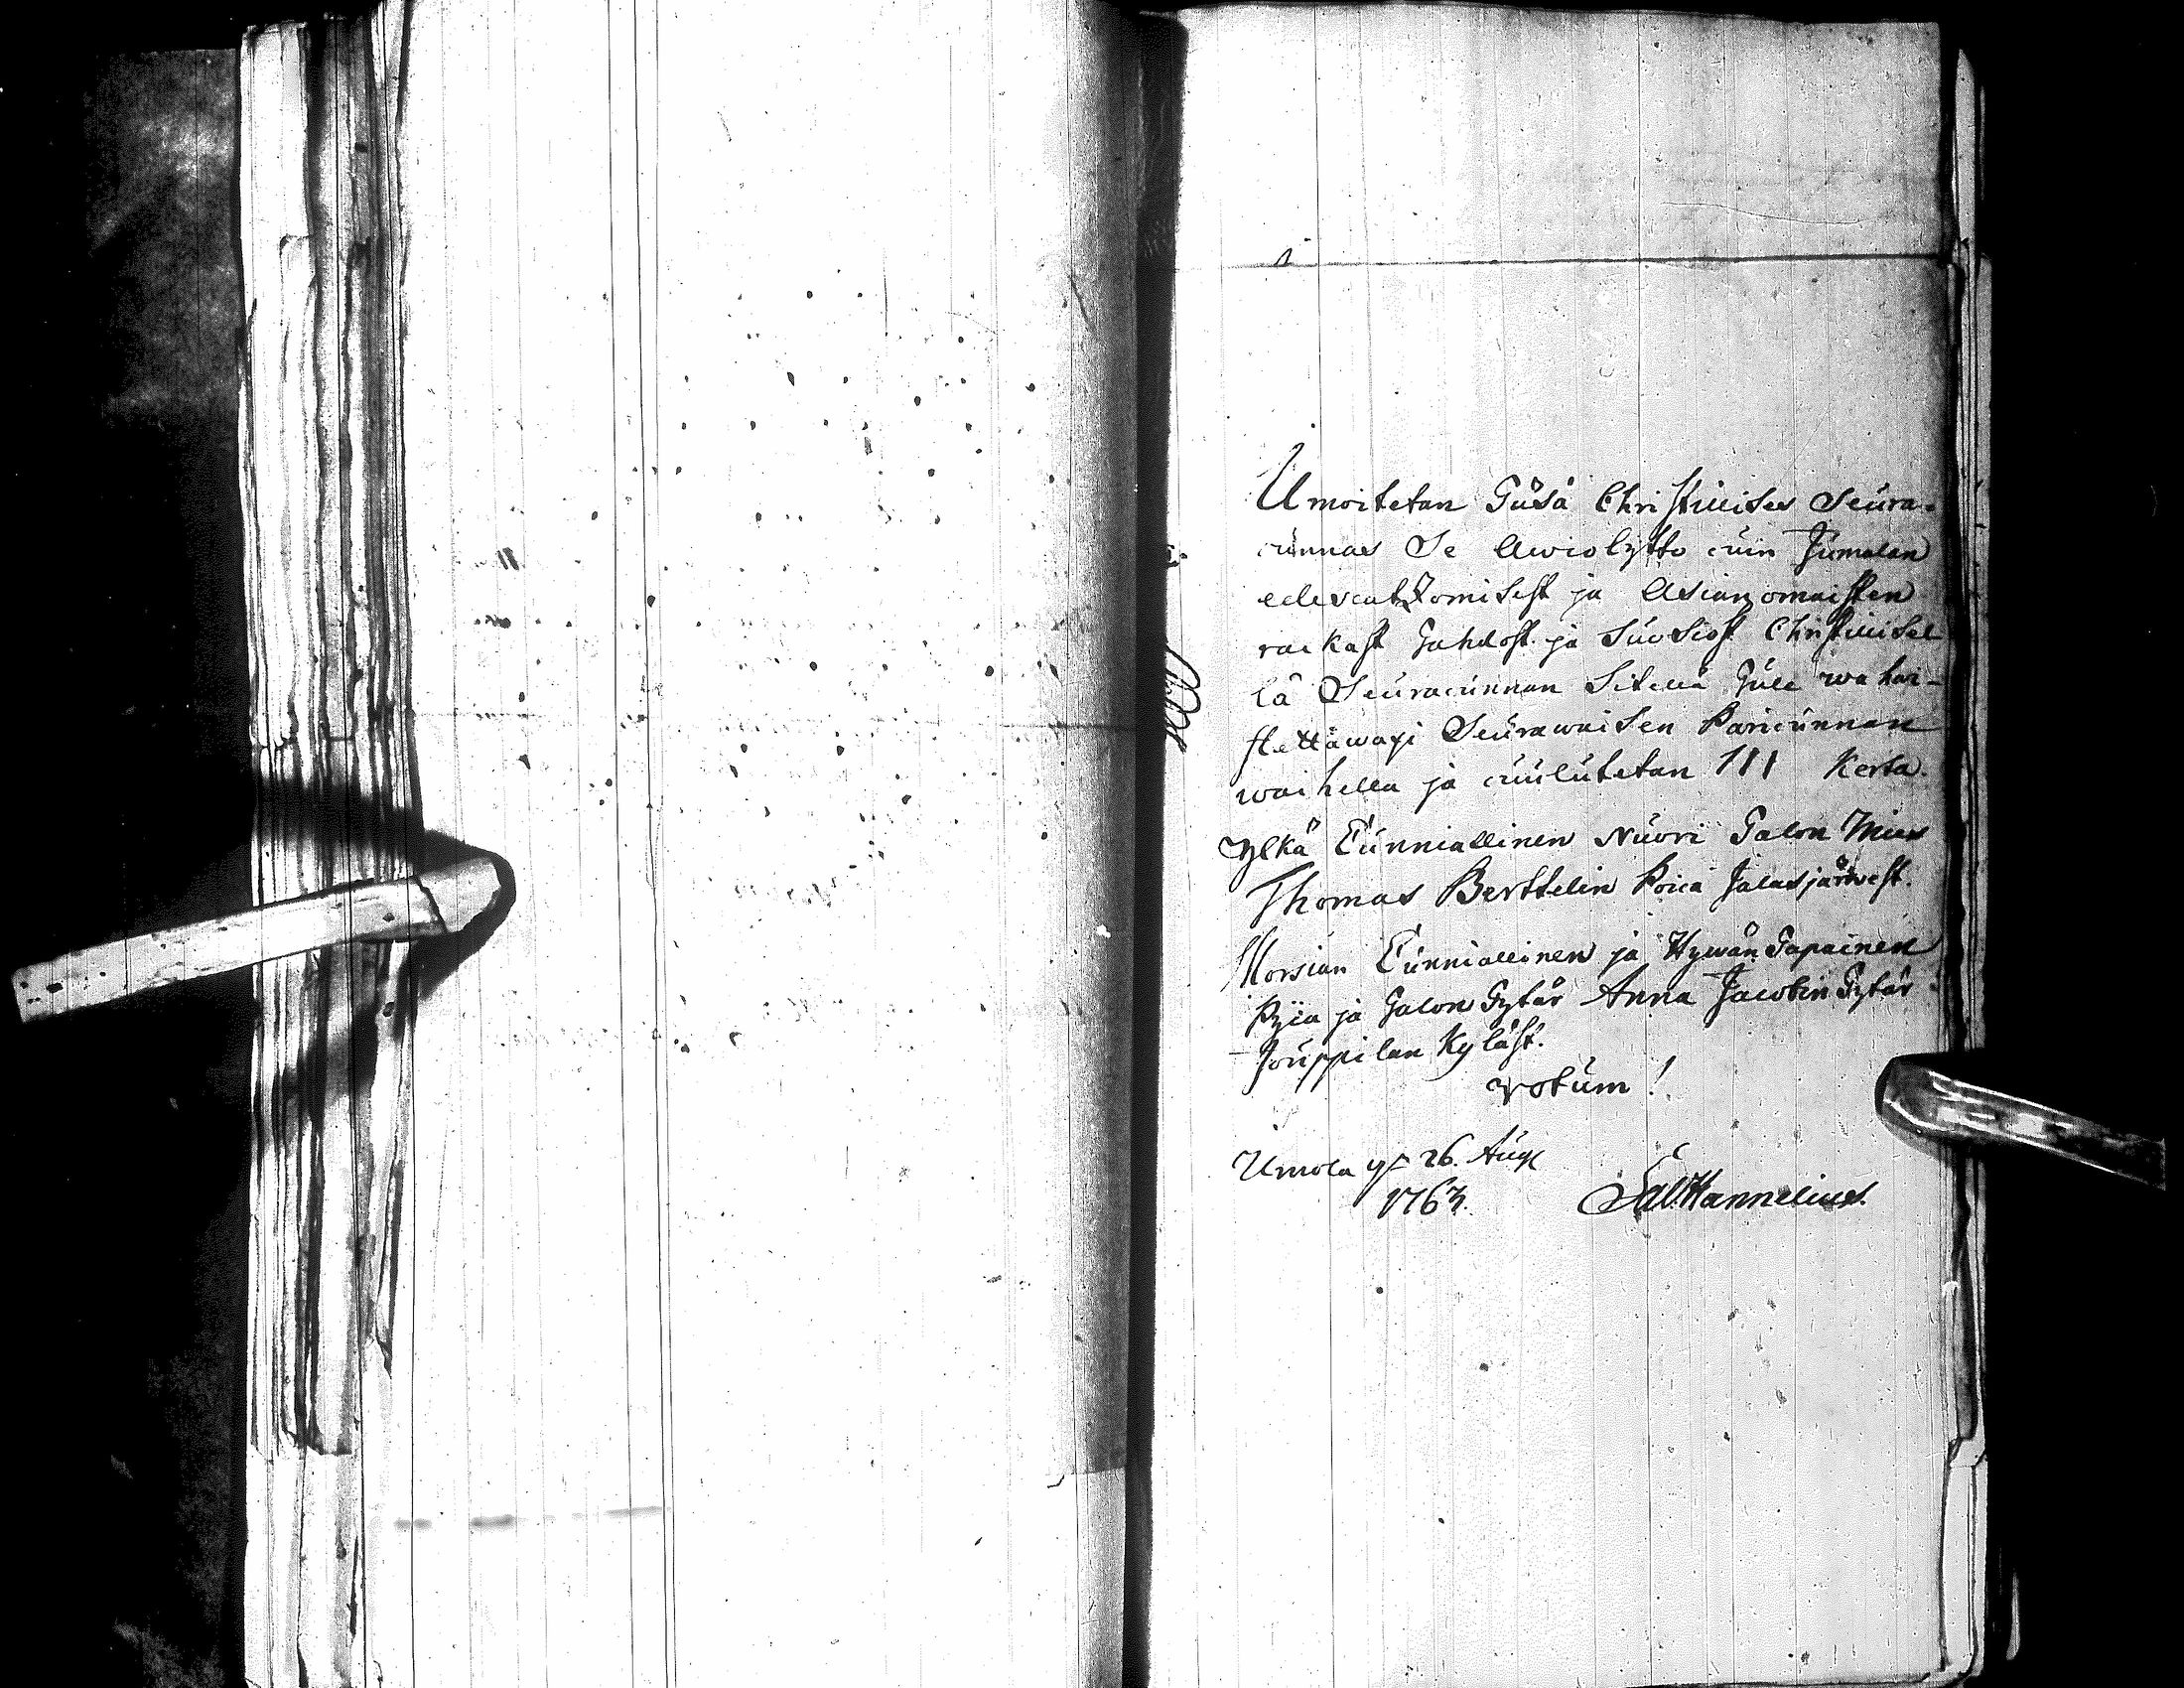 Ilmoitetan Täsä Christilises Seura-
cunnas Se Awiolijtto cuin Jumalan
edescatzomisest ja Asianomaisten
rackast Tahdost ja Suosiost Christilisel
lä Seuracunnan Sitellä Tule wahwi-
stettäwaxi Seurawaisen Paricunnan
waihella ja cuulutetan III Kerta.
Ylkä Cunniallinen Nuori Talon Mies
Thomas Berttelin Poica Jalasjärwest.
Morsian Cunniallinen ja Hywän Tapainen
Pijca ja Talon Tytär Anna Jacobin Tytär
Jouppilan Kyläst.
Votum!
Ilmola 26. Aug
1763.
Hannelius.